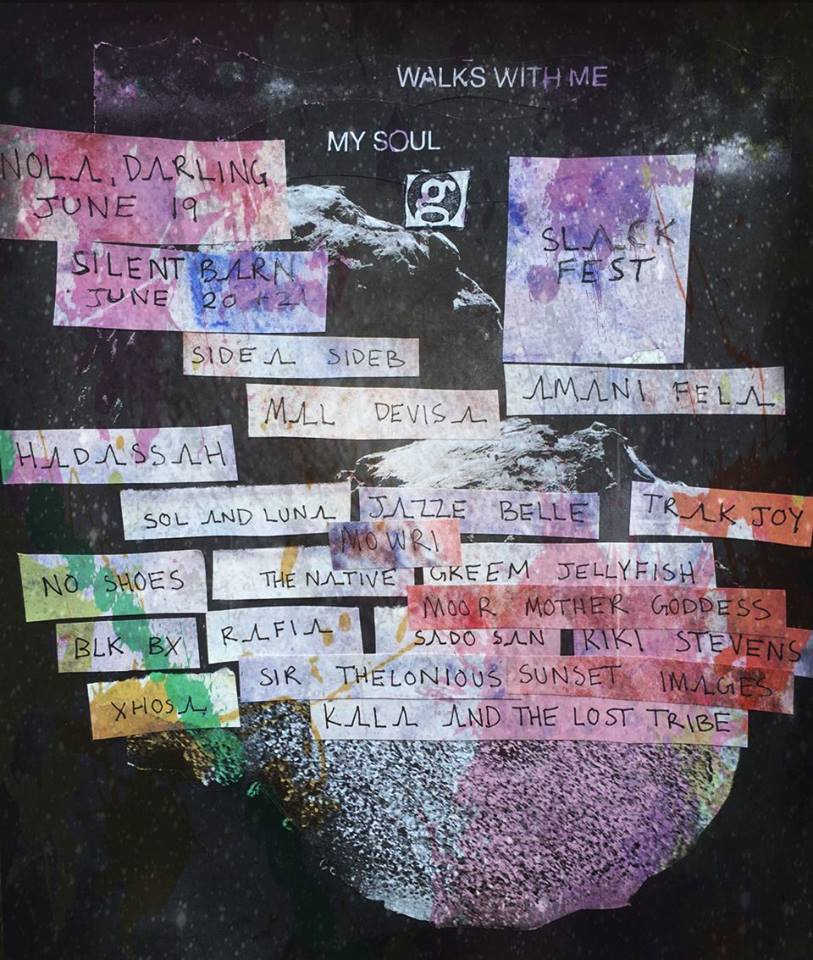 WALKS WITH ME
MY SOUL
g
NOLA, DARLING
JUNE 19
SLACK
FEST
SILENT BARN
JUNE 20 +21
SIDE A SIDE B
AMANI FELA
MAL DEVISA
HADASSAH
SOL AND LUNA
JAZZE BELLE
TRAK JOY
MOWRI
NO SHOES
THE NATIVE
GKEEM JELLYFISH
MOOR MOTHER GODDESS
BLK BX
RAFIA
SADO SAN
KIKI STEVENS
SIR THELONIOUS
SUNSET IMAGES
XHOSA
KALA AND THE LOST TRIBE